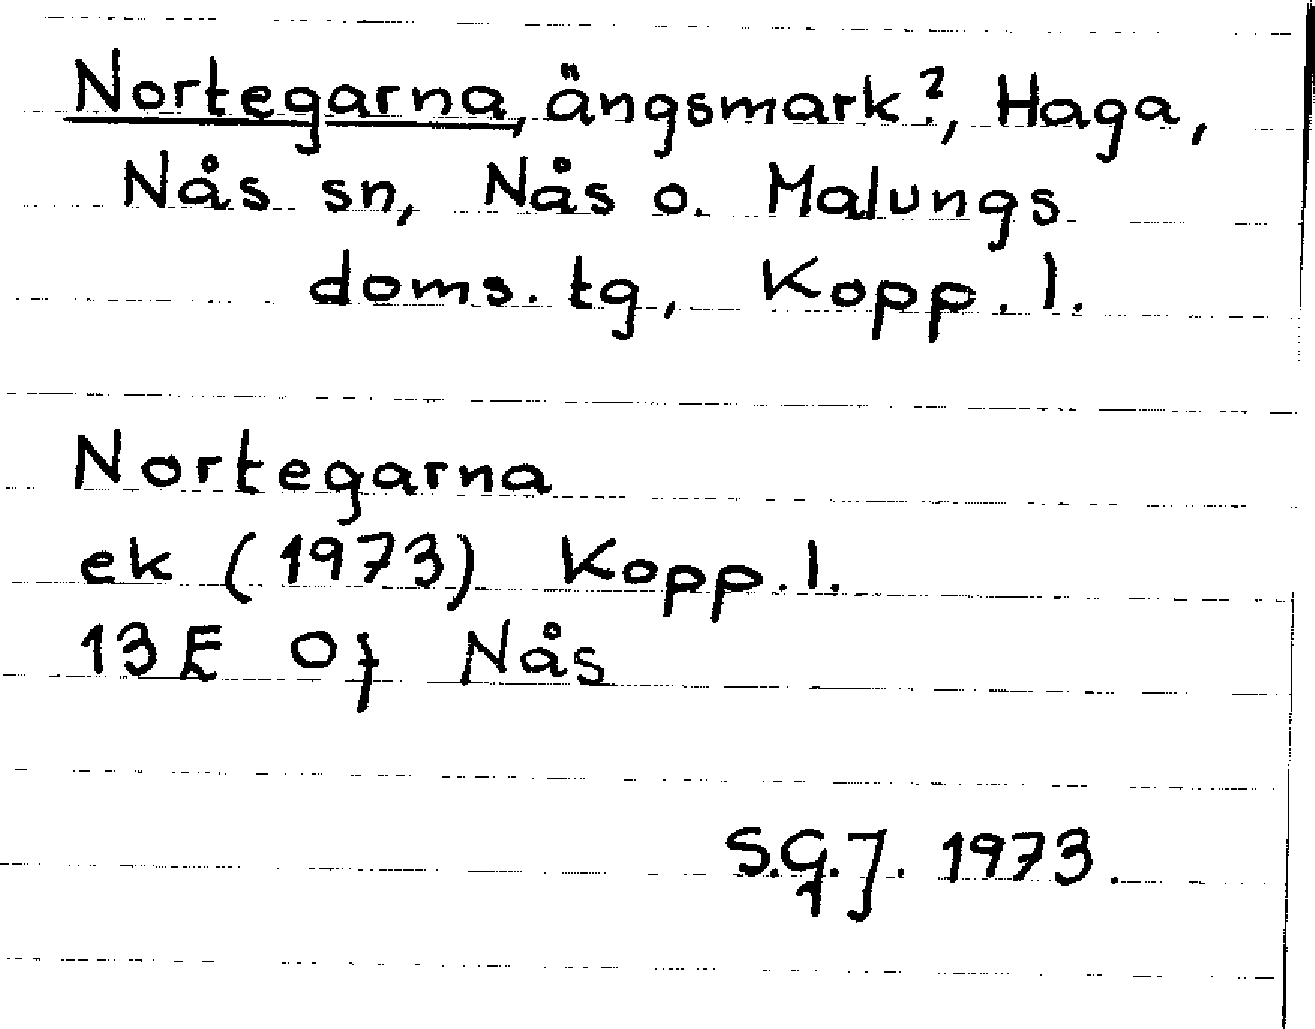 Nortegarna, ängsmark?, Haga,
Nås sn, Nås o. Malungs
doms. tg, Kopp. l.
Nortegarna
ek (1973) Kopp. l.
13E 0f Nås
S.G.J. 1973.